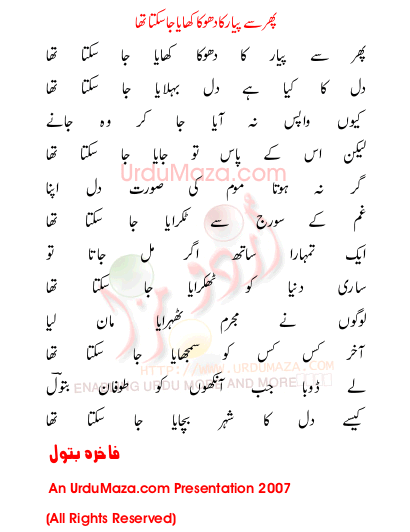 پھر سے پیار کا دھوکا کھایا جا سکتا تھا
پھر سے پیار کا دھوکا کھایا جا سکتا تھا
دل کا کیا ہے دل بہلایا جا سکتا تھا
کیوں واپس نہ آیا جا کر وہ جانے
لیکن اس کے پاس تو جایا جا سکتا تھا
UrduMaza.com
گر نہ ہوتا موم کی صورت دل اپنا
غم کے سورج سے ٹکرایا جا سکتا تھا
ایک تمہارا ساتھ اگر مل جاتا تو
ساری دنیا کو ٹھکرایا جا سکتا تھا
اردو مزا
لوگوں نے مجرم ٹھہرایا مان لیا
آخر کس کس کو سمجھایا جا سکتا تھا
HTTP://WWW.URDUMAZA.COM
ENABLING URDU MORE AND MORE
لے ڈوبا جب آنکھوں کو طوفان بتولؔ
کیسے دل کا شہر بچایا جا سکتا تھا
فاخرہ بتول
An UrduMaza.com Presentation 2007
(All Rights Reserved)